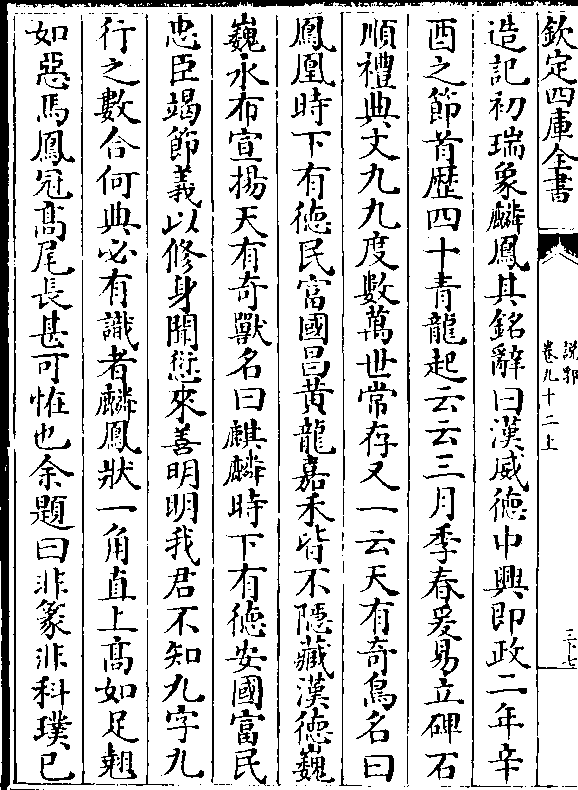 欽定四庫全書
說郛
卷九十二上
三十七
造記初瑞象麟鳳其銘辭曰漢威德中興即政二年辛
酉之節首歴四十青龍起云云三月季春爰易立碑石
順禮典丈九九度數萬世常存又一云天有奇鳥名曰
鳳凰時下有徳民富國昌黄龍嘉禾皆不隠藏漢德巍
巍永布宣揚天有奇獸名曰麒麟時下有徳安國富民
忠臣竭節義以修身聞愆來善明明我君不知九字九
行之數合何典必有識者麟鳳狀一角直上髙如足翹
如惡馬鳳冠髙尾長甚可恠也余題曰非篆非科璞已